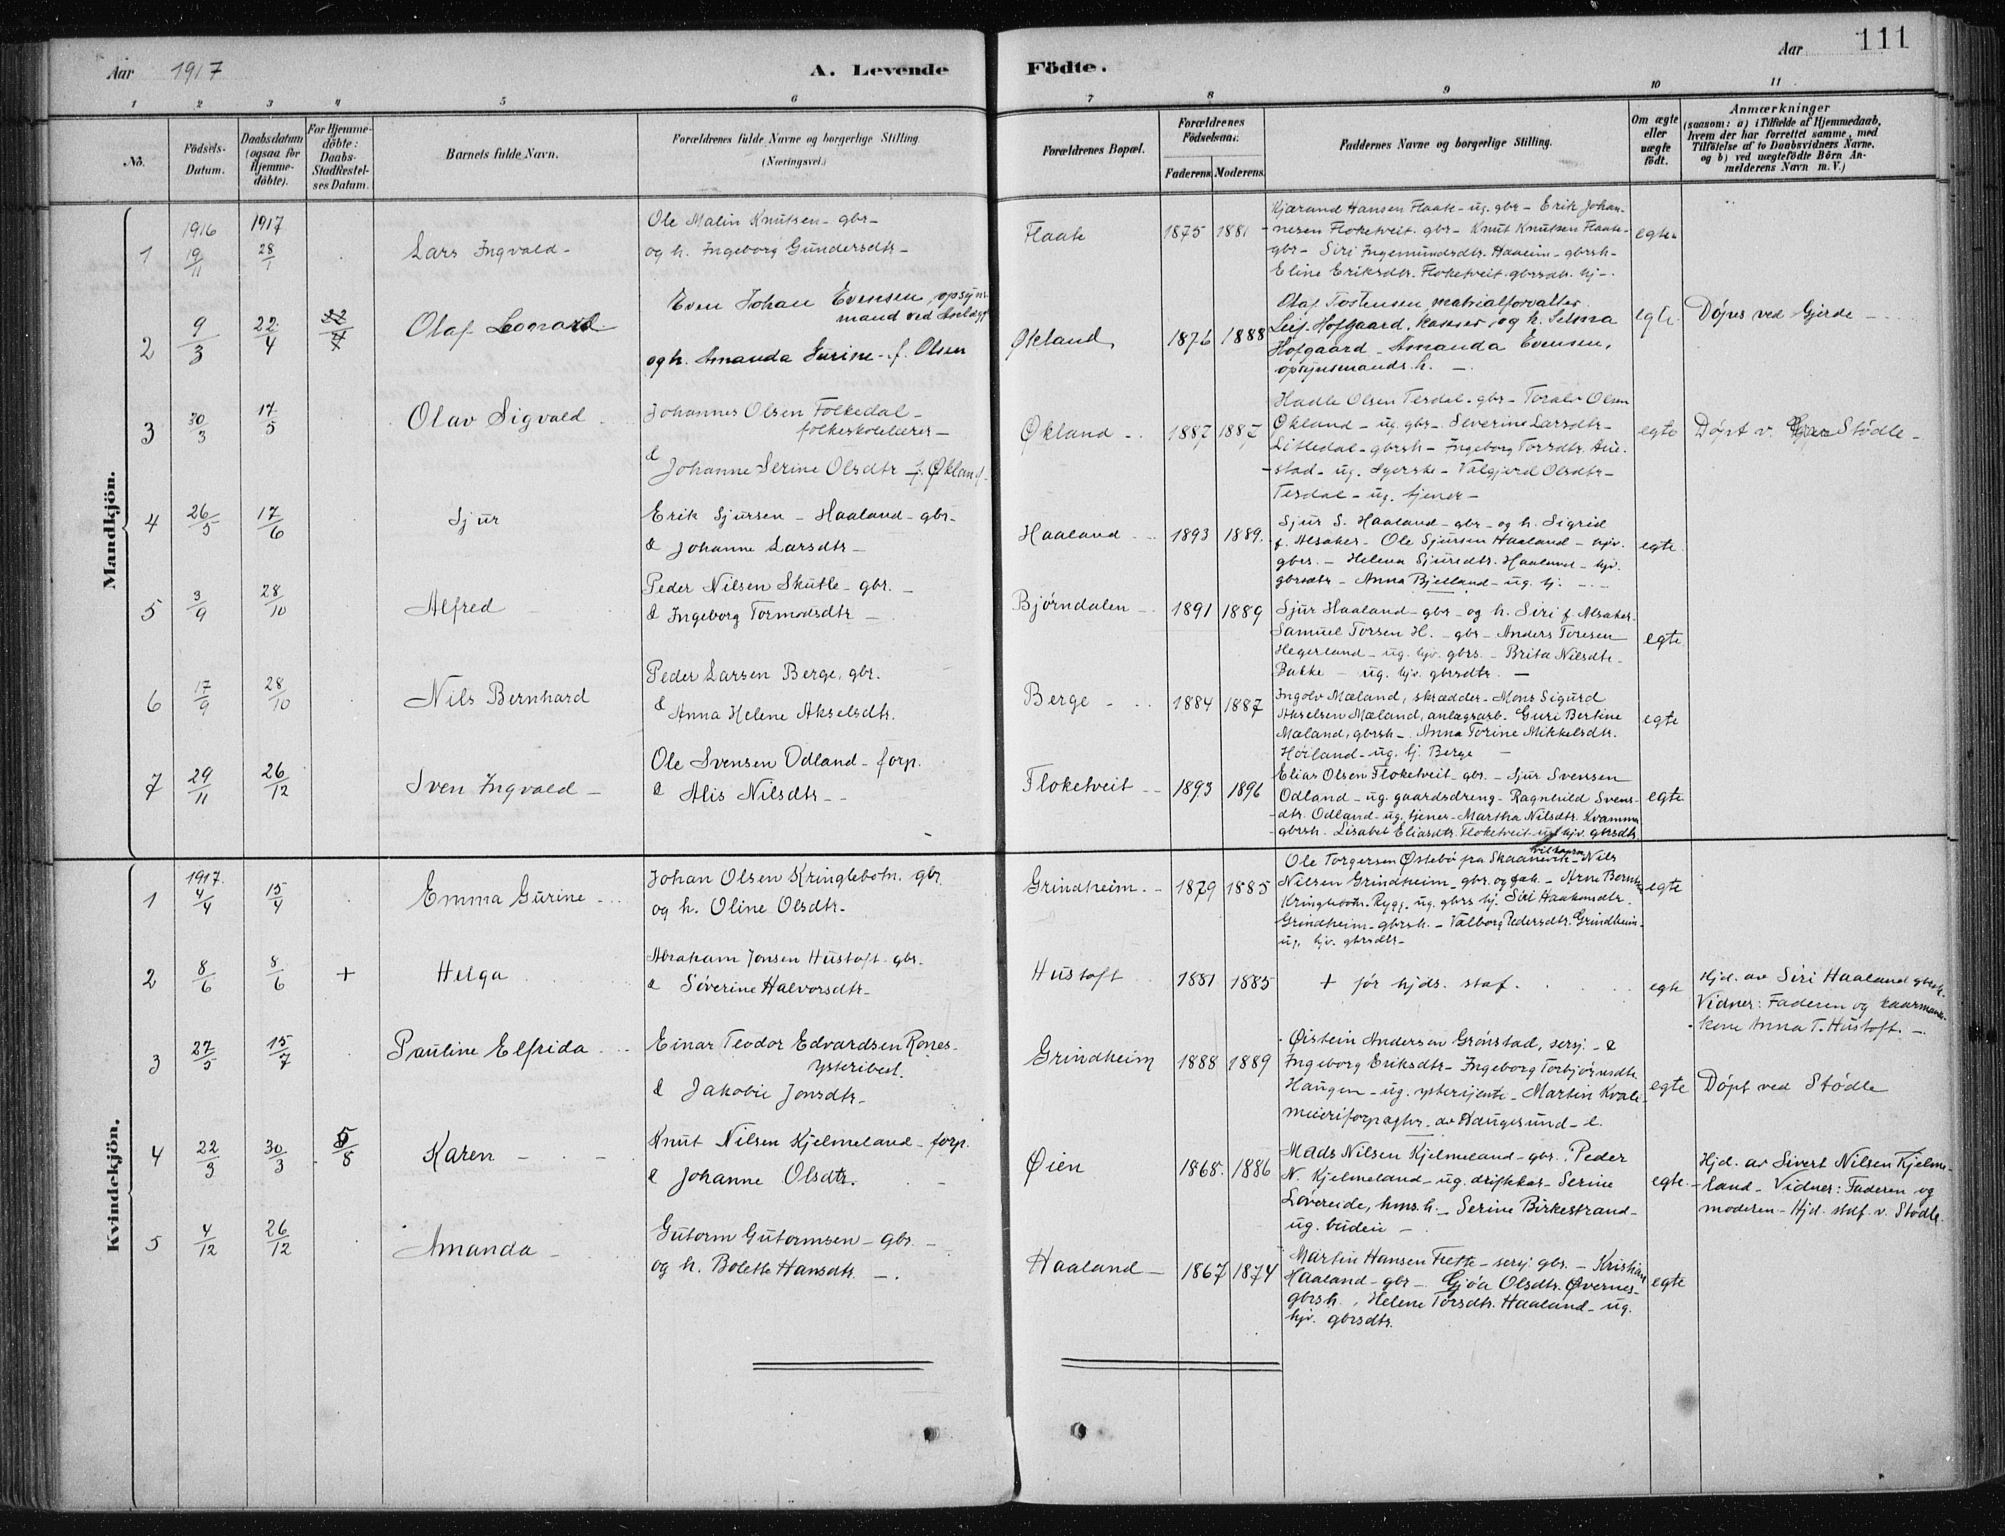 Aar 1917
A. Levende Födte.
Aar 111
1 2 3 4 5 6 7 8 9 10 11
No.
Födsels-Datum.
Daabsdatum (ogsaa för Hjemmedöbte).
For Hjemmedöbte: Daabs-Stadfestelses Datum.
Barnets fulde Navn.
Forældrenes fulde Navne og borgerlige Stilling (Næringsvei.)
Forældrenes Bopæl.
Forældrenes Födselsaar.
Faderens. Moderens.
Faddernes Navne og borgerlige Stilling.
Om ægte eller uægte födt.
Anmærkninger
(saasom: a) i Tilfælde af Hjemmedaab, hvem der har forrettet samme, med Tilföielse af to Daabsvidners Navne, og b) ved uægtefödte Börn Anmelderens Navn m.V.)
Mandkjön.
1 1916 19/11 1917 28/1 Lars Ingvald-
Ole Malin Knutsen- gbr-
og h. Ingeborg Gundersdtr-
Flaate 1875 1881
Kjærand Hansen Flaate- ug. gbr- Erik Johan-
nesen Floketveit. gbr- Knut Knutsen Flaate-
gbr- Siri Ingemundsdtr. Haaeim- gbrsh-
Eline Eriksdtr. Floketveit. gbrsdtr. hj-.
egte
2 9/3 22/4 Olaf Leonard
Even Johan Evensen, opsyns-
mand ved
og h. Amanda Gurine- f. Olsen
Økland, 1876 1888
Olaf Tostensen, matrialforvalter.
Leif Hofgaard, kasser, og h. Selma
Hofgaard- Amanda Evensen,
opsynsmands h. -
egte. Døpes ved Gjerde -
3 30/3 17/5 Olav Sigvald
Johannes Olsen Folkedal-
folkeskolelærer-
& Johanne Serine Olsdtr f. Økland.
Økland - 1887 1887
Hadle Olsen Tesdal- gbr- Toralv Olsen
Økland- ug. gbr- Severine Larsdtr-
Litledal- gbrsh- Ingeborg Torsdtr. Aue-
stad- ug. syerske- Valgjerd Olsdtr-
Tesdal- ug. tjener-
egte Døpt v. Stødle-
4 26/5 17/6 Sjur
Erik Sjursen- Haaland- gbr-
& Johanne Larsdtr-
Haaland - 1893 1889.
Sjur S. Haaland- gbr- og h. Sigrid
f. Alsaker- Ole Sjursen Haaland- hjv.
gbrs.- Helena Sjursdtr. Haaland- hjv.
gbrsdtr- Anna Bjelland- ug. hj. -
egte
5 3/9 28/10 Alfred
Peder Nilsen Skutle- gbr. -
& Ingeborg Tormodsdtr -
Bjørndalen - 1891 1889
Sjur Haaland- gbr- og h. Siri f. Alsaker-
Samuel Torsen H.- gbr- Anders Toresen
Hegerland- ug. hjv. gbrs.- Brita Nilsdtr.
Bakke- ug. hjv. gbrsdtr. -
egte
6 17/9 28/10 Nils Bernhard
Peder Larsen Berge, gbr.
& Anna Helene Akselsdtr.
Berge - 1884 1887
Ingolv Mæland, skrædder- Mons Sigurd
Akselsen Mæland, anlægsarb- Guri Bertine
Mæland, gbrsh-. Anna Torine Mikkelsdtr.
Høiland- ug. hj. Berge -
egte
7 29/11 26/12 Sven Ingvald-
Ole Svensen Odland- forp.
& Alis Nilsdtr--
Floketveit - 1893 1896
Elias Olsen Floketveit- gbr.- Sjur Svensen
Odland- ug. gaardsdreng- Ragnhild Svens-
dtr. Odland- ug. tjener- Martha Nilsdtr. Kvamme
gbrsh- Lisabet Eliasdtr. Floketveit- ug. hjv. gbrsdtr
egte
Kvindekjön.
1 1917. 4/4 15/4 Emma Gurine-
Johan Olsen Kringlebotn. gbr.
og h. Oline Olsdtr-
Grindheim - 1879 1885
Ole Torgersen Østebø fra Skaanevik- Nils
Nilsen Grindheim- gbr. og - Arne
Kringlebotn- Rygg- ug. gbrs hj. Siri Haakonsdtr.
Grindheim- gbrsh.- Valborg Pedersdtr. Grindheim-
ug. hjv. gbrsdtr-
egte
2 8/6 8/6 + Helga
Abraham Jonsen Hustoft- gbr.
& Søverine Halvorsdtr-
Hustoft 1881 1885 + før hjds. staf. egte
Hjd. av Siri Haaland gbrsh.
Vidner: Faderen og kaarmands-
kone Anna T. Hustoft. -
3 27/5 15/7 Pauline Elfrida
Einar Teodor Edvardsen Rones-
ysteribest.
& Jakobie Jonsdtr-
Grindheim 1888 1889
Øistein Andersen Grønstad, sersj.- &
Ingeborg Eriksdtr- Ingeborg Torbjørnsdtr.
Haugen- ug. ysterijente- Martin Kvale-
meieriforpagtr. av Haugesund- &.
egte Døpt ved Stødle
4 22/3 30/3 5/8 Karen -
Knut Nilsen Kjelmeland- forp.
& Johanne Olsdtr. -
Øien 1868. 1886
Mads Nilsen Kjelmeland- gbr. Peder
N. Kjelmeland- ug. driftekar- Serine
Løvereide, hms.h.- Serine Birkestrand-
ug. budeie -
egte.
Hjd. av Sivert Nilsen Kjelme-
land- Vidner: Faderen og
moderen- Hjd. staf. v. Stødle.
5 4/12 26/12 Amanda -
Gutorm Gutormsen- gbr -
og h. Bolette Hansdtr. -.
Haaland - 1867 1874
Martin Hansen Tvette- sersj. gbr.- Kristian
Haaland- gbr- Gjøa Olsdtr. Øvernes-
gbrsh., Helene Torsdtr. Haaland- ug.
hjv. gbrsdtr.
egte